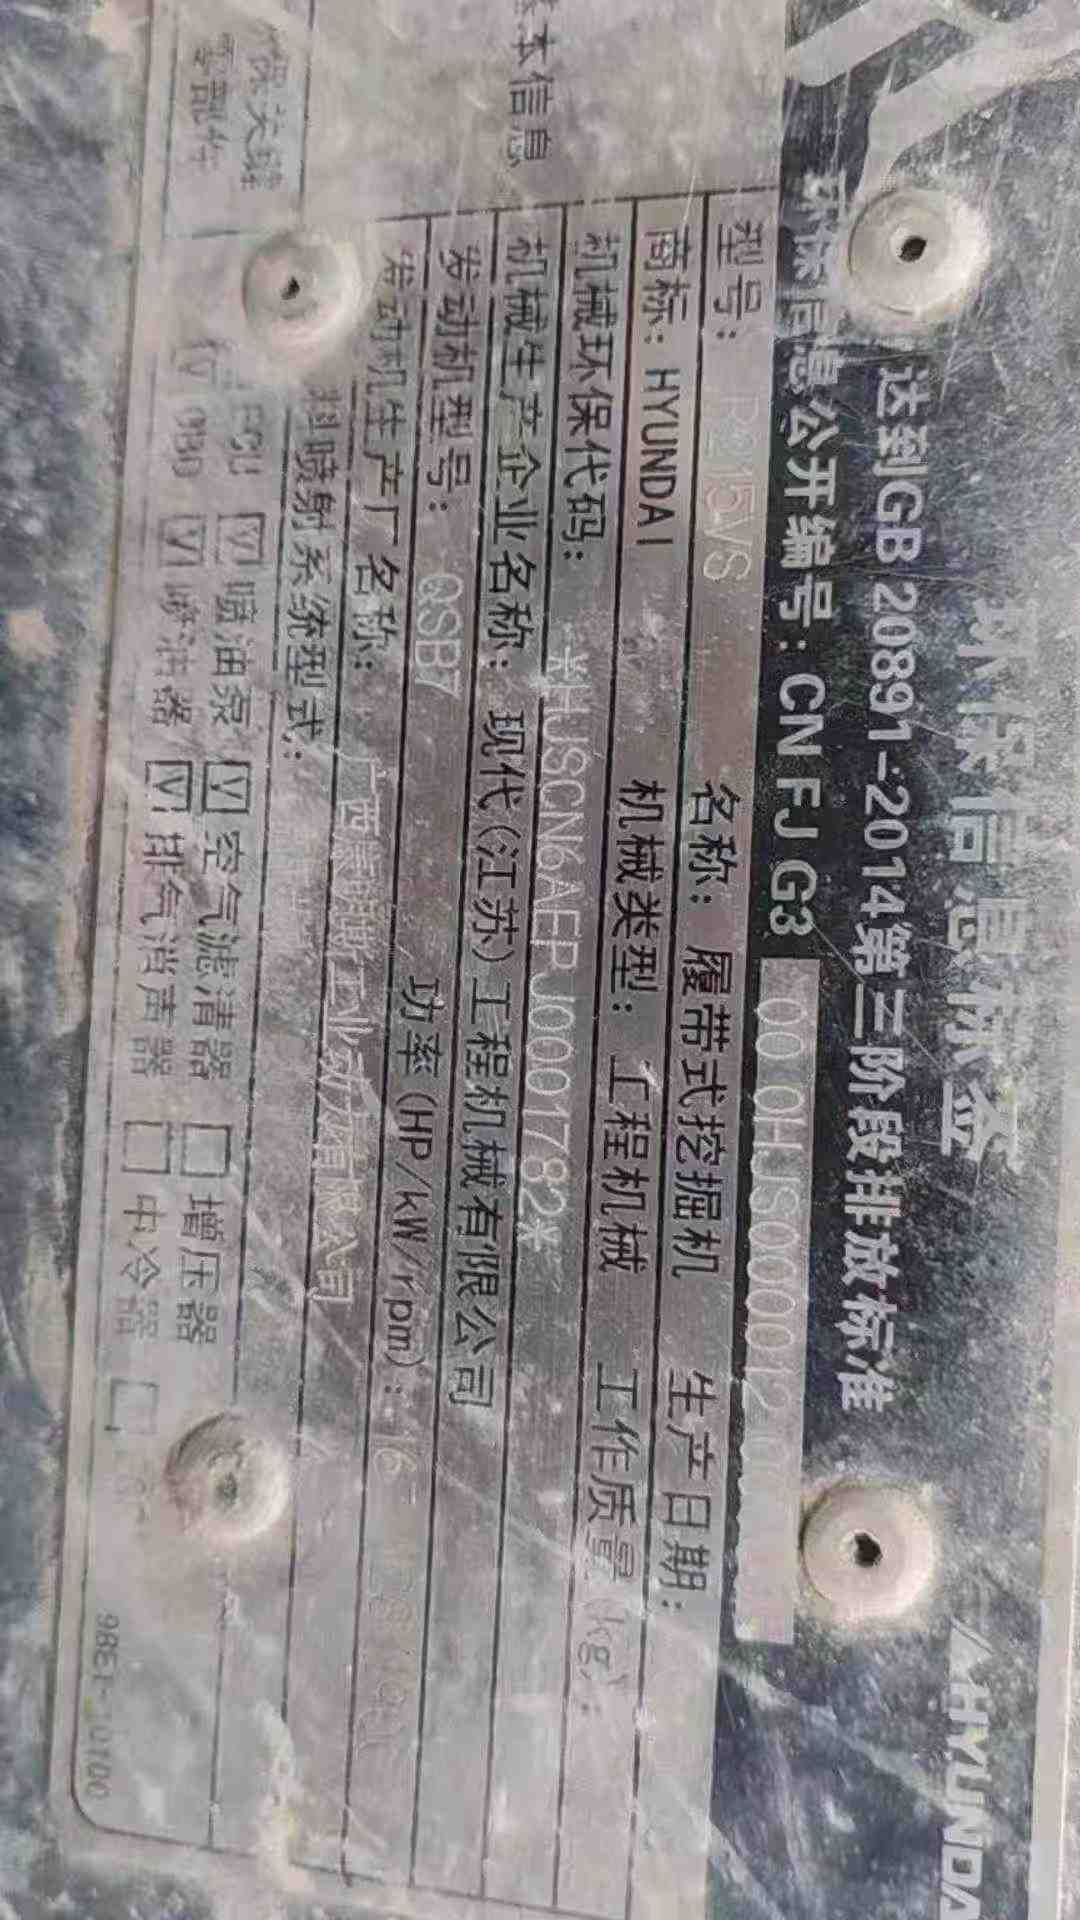 环保信息标签
HYUNDA
达到GB 20891-2014第三阶段排放标准
环保信息公开编号: CN FJ G3 00 0HJS000012
基本信息
型号: R215VS 名称: 履带式挖掘机 生产日期:
商标: HYUNDAI 机械类型: 工程机械 工作质量(kg):
机械环保代码: *HJSCN6AEPJ0001782*
机械生产企业名称: 现代(江苏)工程机械有限公司
发动机型号: QSB7 功率(HP/kW/rpm):
发动机生产厂名称: 广西康明斯工业动力有限公司
喷射系统型式:
ECU 喷油泵 空气滤清器 增压器
喷油器 排气消声器 中冷器
98E1-10700